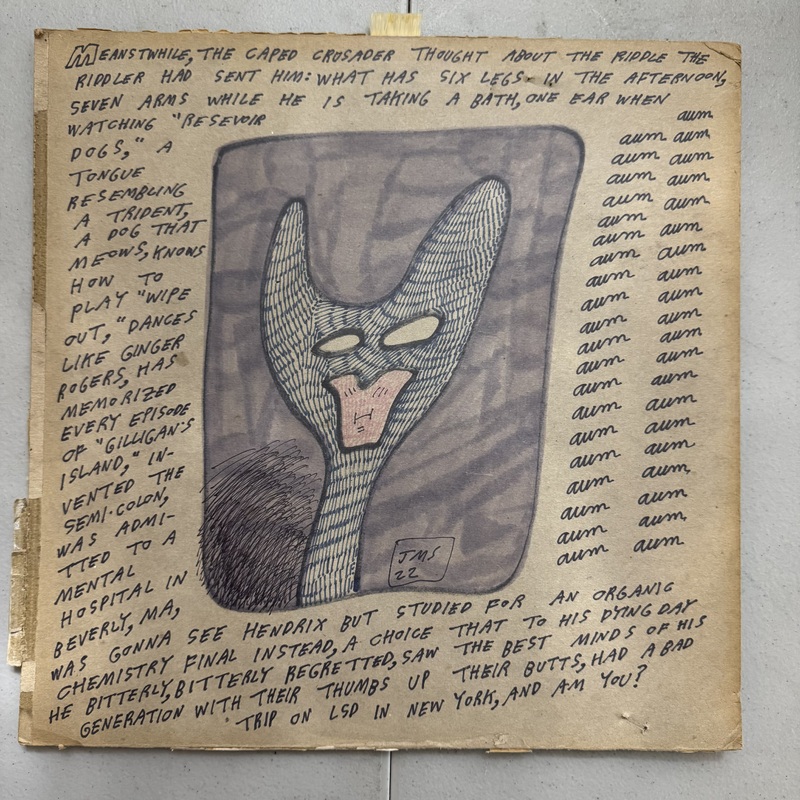 MEANSTWHILE, THE CAPED CRUSADER THOUGHT ABOUT THE RIDDLE THE
RIDDLER HAD SENT HIM: WHAT HAS SIX LEGS IN THE AFTERNOON,
SEVEN ARMS WHILE HE IS TAKING A BATH, ONE EAR WHEN
WATCHING "RESEVOIR
DOGS," A
TONGUE
RESEMBLING
A TRIDENT,
A DOG THAT
MEOWS, KNOWS
HOW TO
PLAY "WIPE
OUT," DANCES
LIKE GINGER
ROGERS, HAS
MEMORIZED
EVERY EPISODE
OF "GILLIGAN'S
ISLAND," IN-
VENTED THE
SEMI-COLON,
WAS ADMI-
TTED TO A
MENTAL
HOSPITAL IN
BEVERLY, MA,
WAS GONNA SEE HENDRIX BUT STUDIED FOR AN ORGANIC
CHEMISTRY FINAL INSTEAD, A CHOICE THAT TO HIS DYING DAY
HE BITTERLY, BITTERLY REGRETTED, SAW THE BEST MINDS OF HIS
GENERATION WITH THEIR THUMBS UP THEIR BUTTS, HAD A BAD
TRIP ON LSD IN NEW YORK, AND AM YOU?
aum
aum aum
aum aum
aum aum
aum aum
aum aum
aum aum
aum aum
aum aum
aum aum
aum aum
aum aum
aum aum
aum aum
aum aum
aum aum
aum aum
aum aum
aum aum
aum aum
aum aum
JMS
22